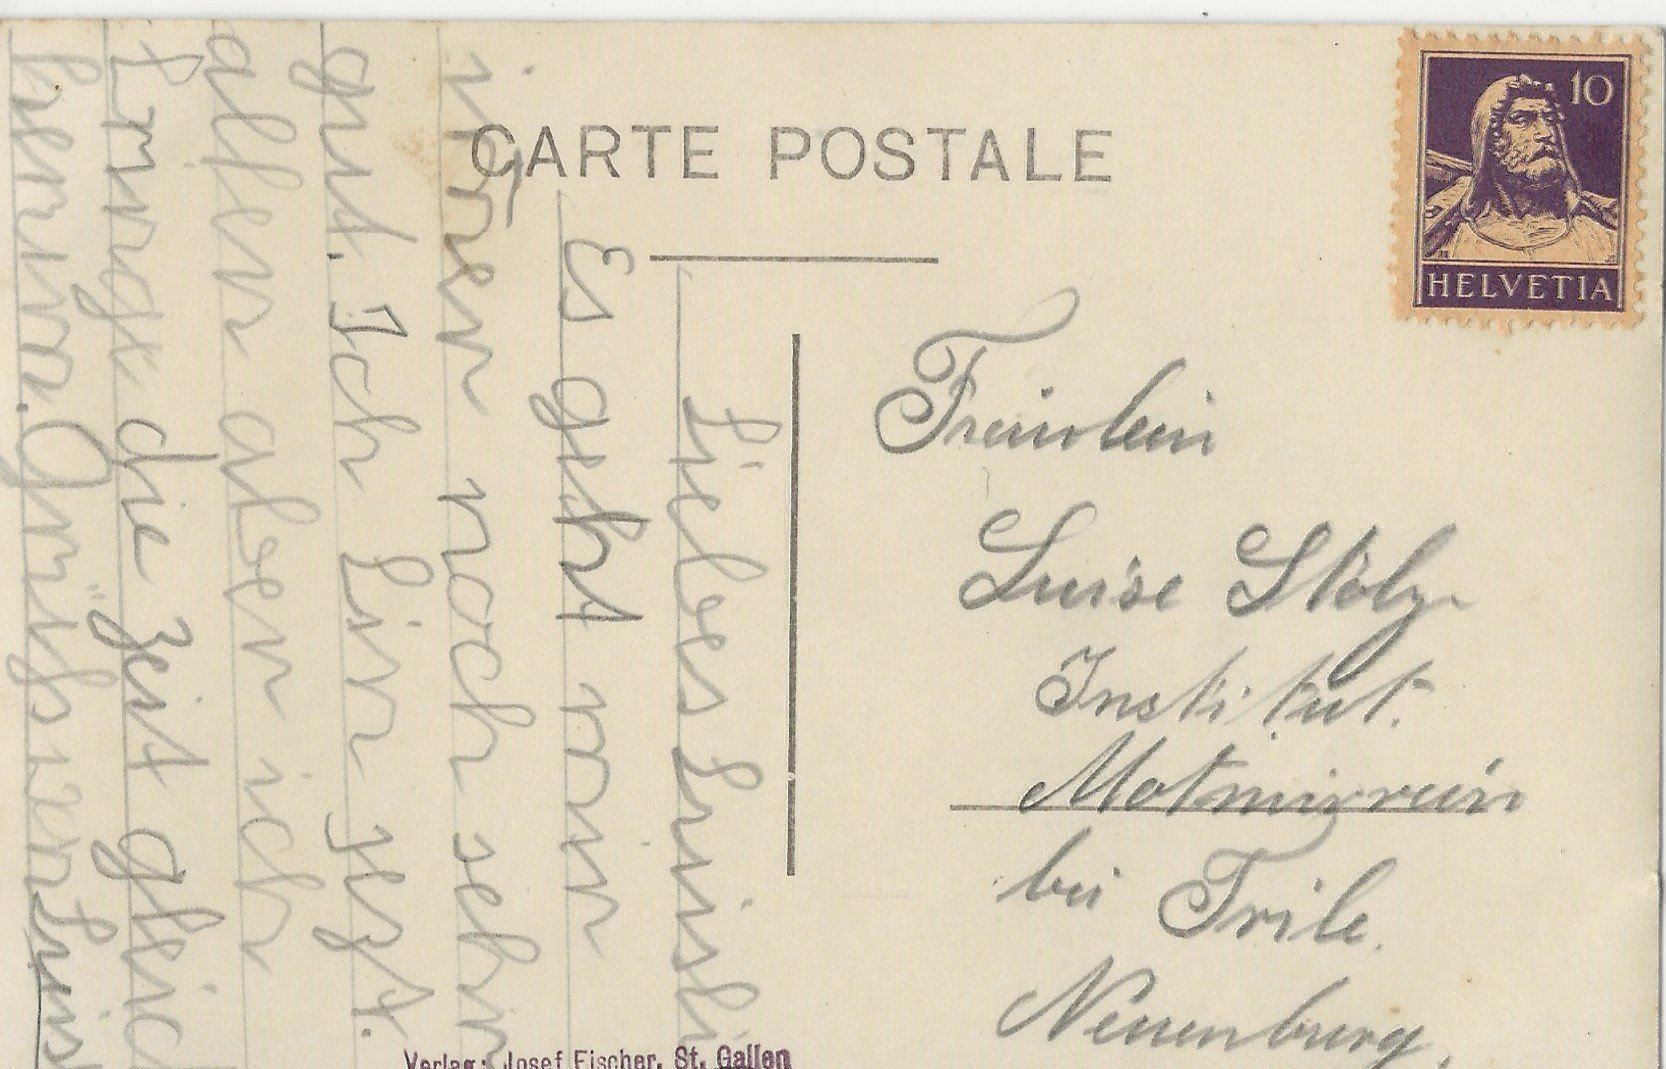 CARTE POSTALE
10
HELVETIA
Fräulein
Luise Stolz
Institut.
bei
Neuenburg.
Liebes Luisli
Es geht mir
immer noch sehr
gut. Ich bin jezt.
allein aber ich
die Zeit gleich
Verlag: Josef Fischer, St. Gallen